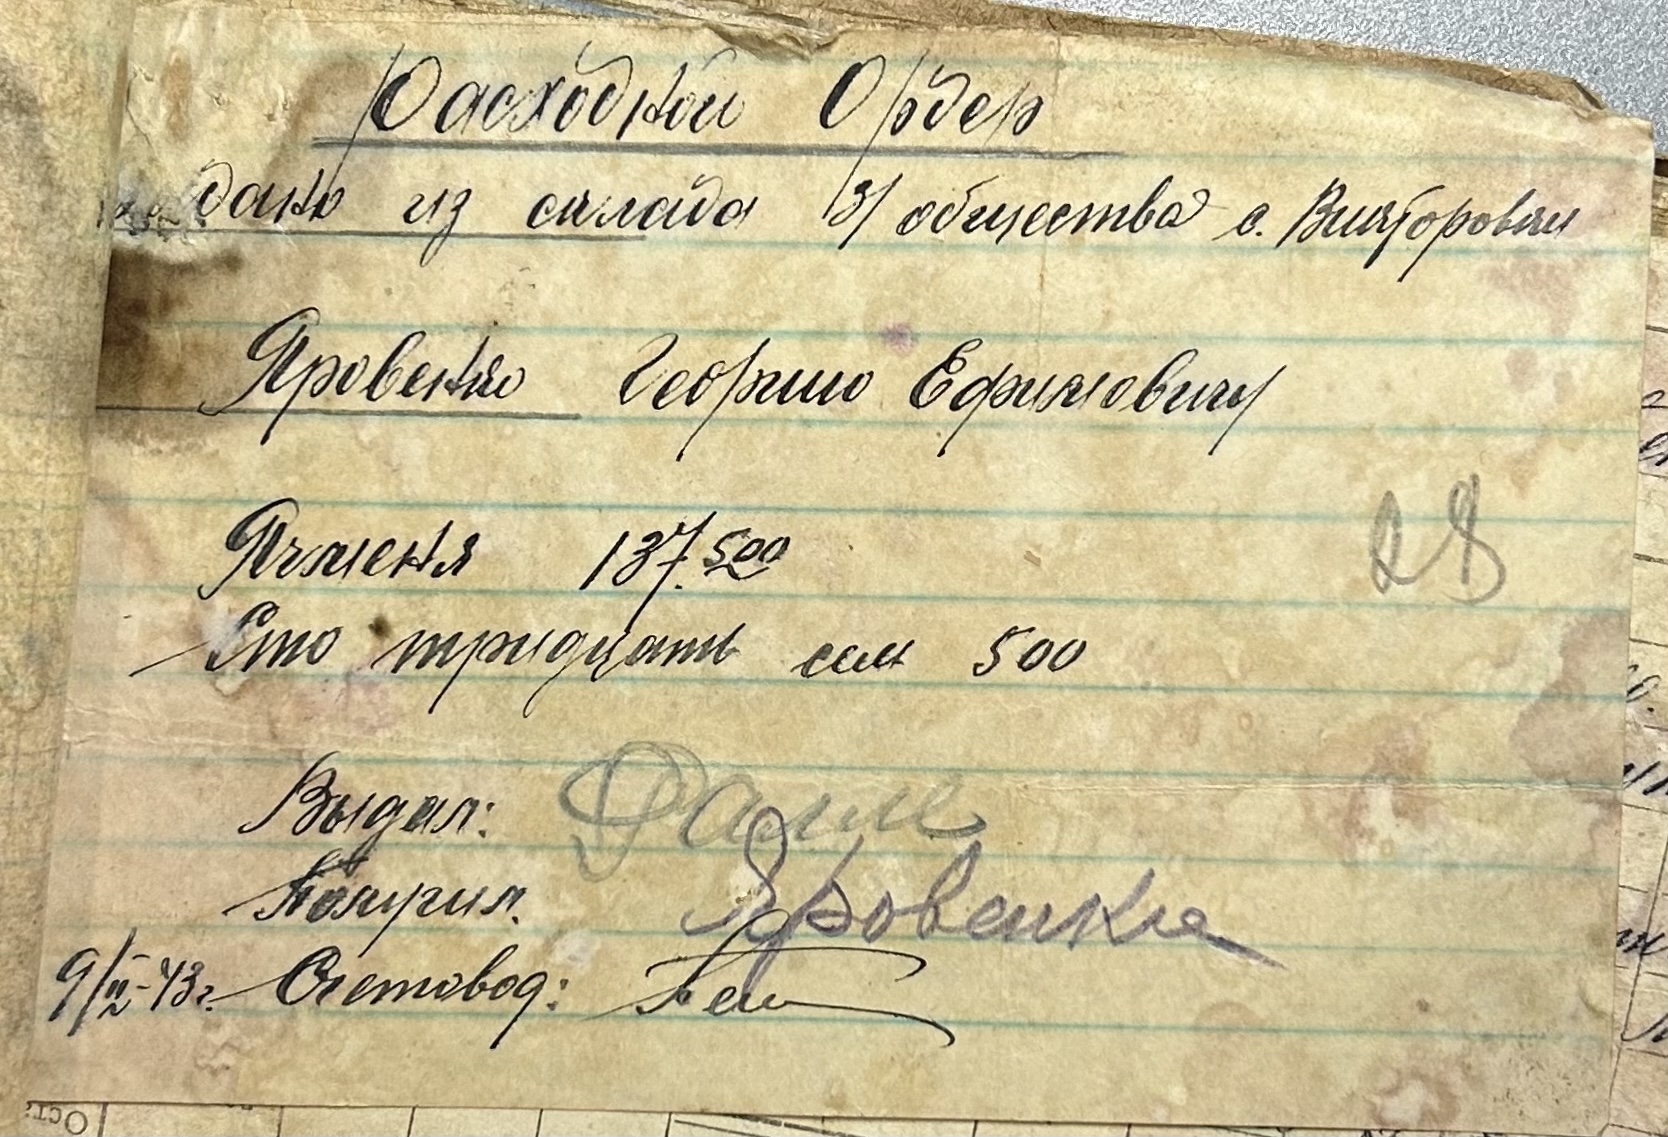 Расходной Ордер
дано из склада З/общества с. Викторовки
Яровенко Георгию Ефимовичу
Ячменя 137.500
28
Сто тридцать сем 500
Выдал:
Получил. Яровенко
9/II-43г. Счетовод:
Ост.